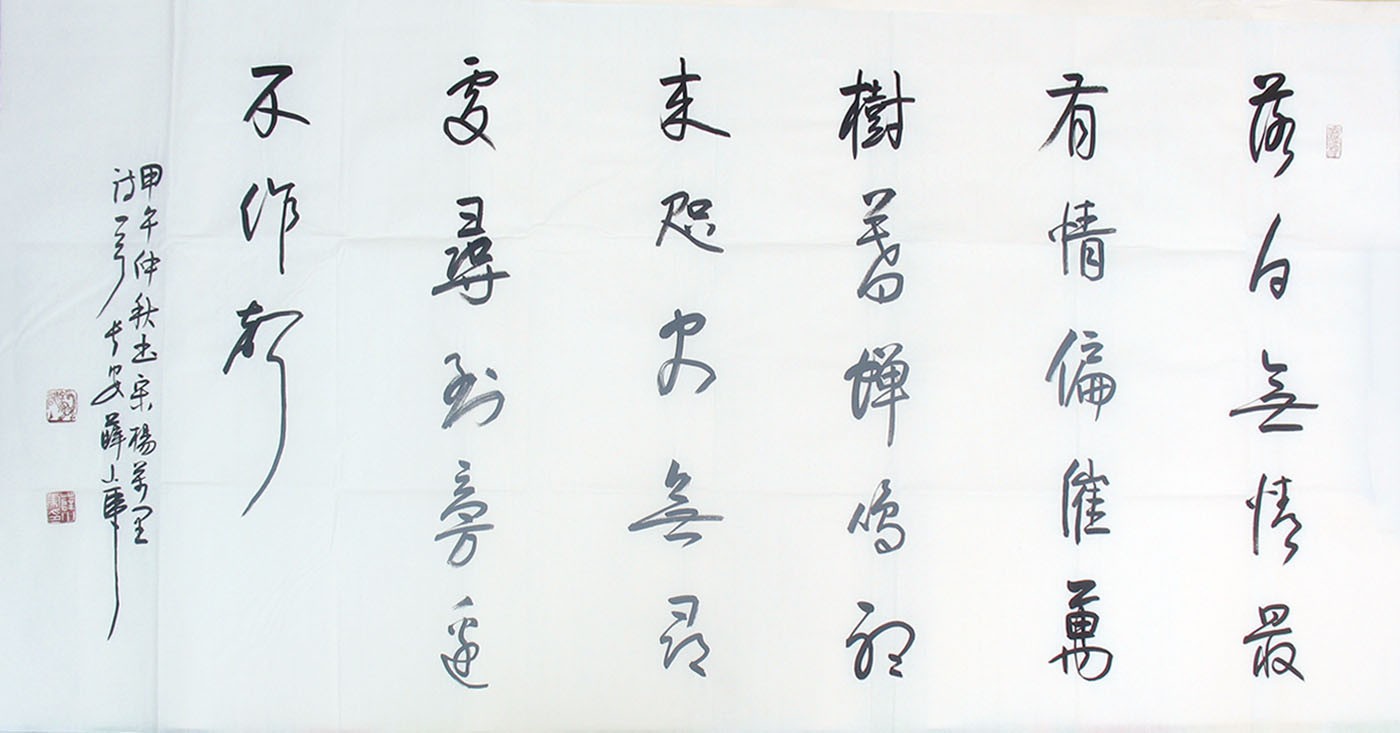 落日無情最
有情偏催萬
樹暮蟬鳴聽
来咫尺無尋
處尋到旁邊
不作聲
甲午仲秋书宋楊萬里
詩一首长安薛